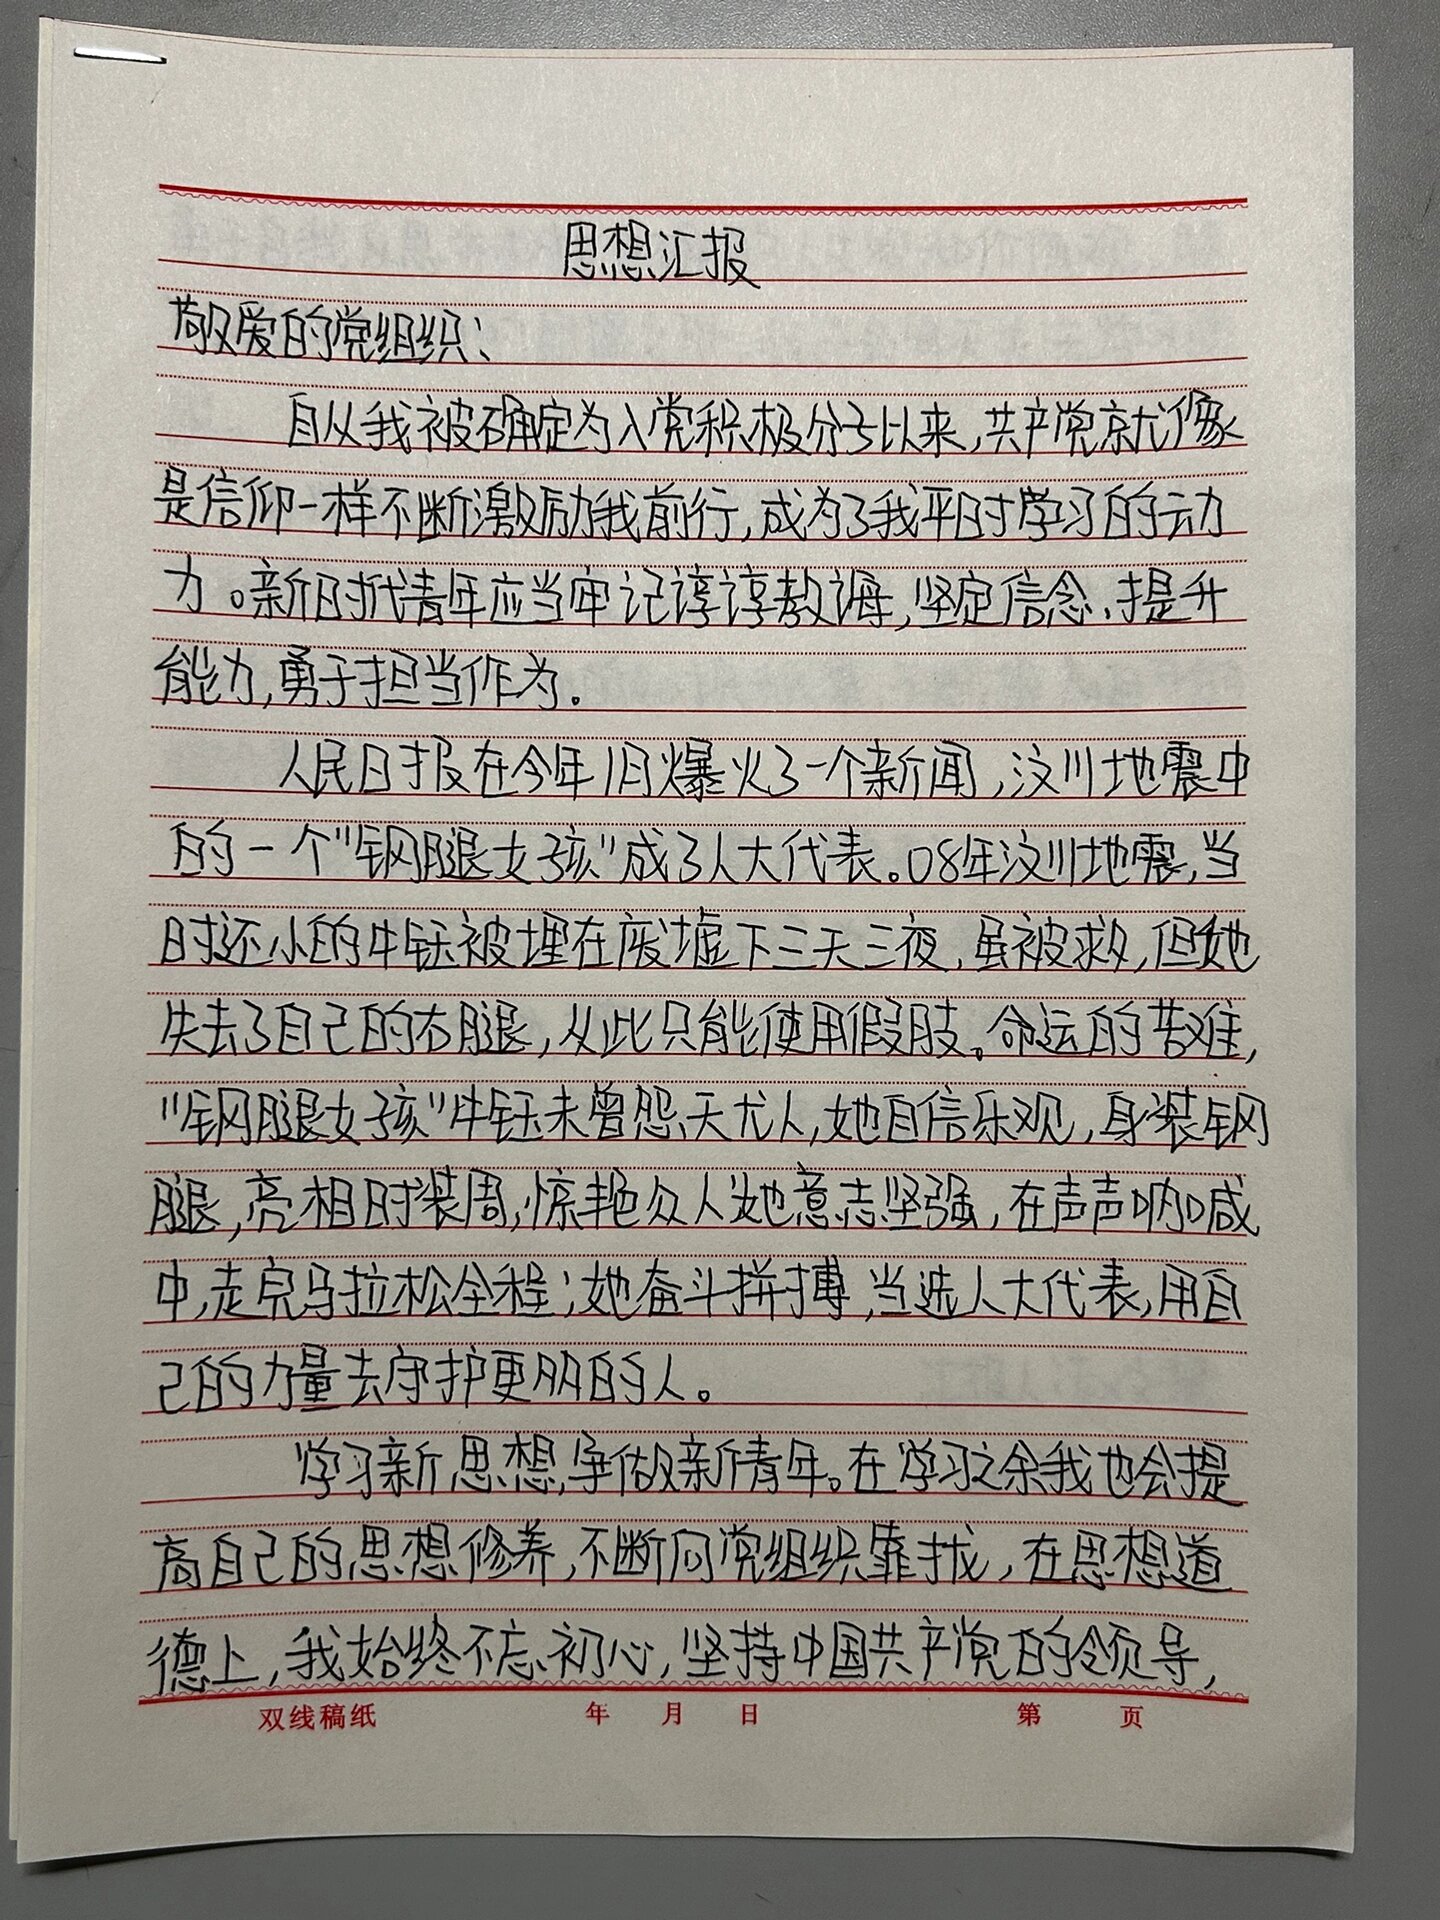 思想汇报
敬爱的党组织：
自从我被确定为入党积极分子以来，共产党就像
是信仰一样不断激励我前行，成为了我平时学习的动
力。新时代青年应当牢记谆谆教诲，坚定信念、提升
能力，勇于担当作为。
人民日报在今年1月爆火了一个新闻，汶川地震中
的一个“钢腿女孩”成了人大代表。08年汶川地震，当
时还小的牛钰被埋在废墟下三天三夜，虽被救，但她
失去了自己的右腿，从此只能使用假肢。命运的苦难，
“钢腿女孩”牛钰未曾怨天尤人，她自信乐观，身装钢
腿，亮相时装周，惊艳众人；她意志坚强，在声声呐喊
中，走完马拉松全程；她奋斗拼搏，当选人大代表，用自
己的力量去守护更多的人。
学习新思想，争做新青年。在学习之余我也会提
高自己的思想修养，不断向党组织靠拢，在思想道
德上，我始终不忘初心，坚持中国共产党的领导，
双线稿纸 年 月 日 第 页